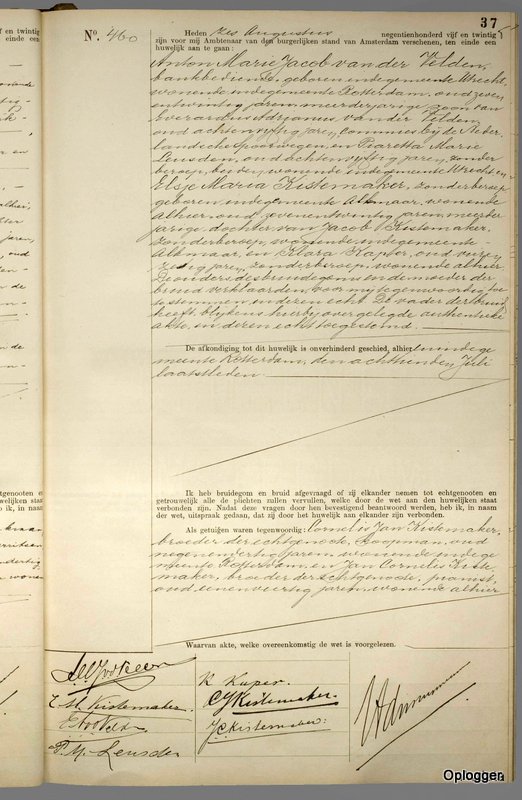 37
No. 460
Heden zes Augustus negentienhonderd vijf en twintig
zijn voor mij Ambtenaar van den burgerlijken stand van Amsterdam verschenen, ten einde een
huwelijk aan te gaan:
Anton Marie Jacob van der Velden,
bankbediende, geboren in de gemeente Utrecht,
wonende in de gemeente Rotterdam, oud zeven
en twintig jaren, meerderjarige zoon van
Everardus Adrianus van der Velden,
oud acht en vijftig jaren, commies bij de Neder-
landsche Spoorwegen, en Pieretta Marie
Leusden, oud acht en vijftig jaren, zonder
beroep, beiden wonende in de gemeente Utrecht en
Elsje Maria Kistemaker, zonder beroep,
geboren in de gemeente Alkmaar, wonende
alhier, oud zeven en twintig jaren, meerder
jarige dochter van Jacob Kistemaker,
zonder beroep, wonende in de gemeente
Alkmaar, en Klara Kuper, oud
zestig jaren, zonder beroep, wonende alhier
De ouders des bruidegoms en de moeder der
bruid verklaarden voor mij tegenwoordig toe
te stemmen in deren echt. De vader der bruid
heeft blijkens hierbij overgelegde authentieke
akte, in deren echt toegestemd.
De afkondiging tot dit huwelijk is onverhinderd geschied, alhier en in de ge
meente Rotterdam, den achttienden Juli
laatstleden
Ik heb bruidegom en bruid afgevraagd of zij elkander nemen tot echtgenooten en
getrouwelijk alle de plichten zullen vervullen, welke door de wet aan den huwelijken staat
verbonden zijn. Nadat deze vragen door hen bevestigend beantwoord werden, heb ik, in naam
der wet, uitspraak gedaan, dat zij door het huwelijk aan elkander zijn verbonden.
Als getuigen waren tegenwoordig: Cornelis Jan Kistemaker,
broeder der echtgenoote, koopman, oud
negen en dertig jaren, wonende in de ge
meente Rotterdam, en Jan Cornelis Kiste
maker, broeder der echtgenoote, pianist,
oud een en veertig jaren, wonende alhier
Waarvan akte, welke overeenkomstig de wet is voorgelezen.
E M Kistemaker.
P. M. Leusden
K Kuper.
CJKistemaker.
JCKistemaker.
Oploggen